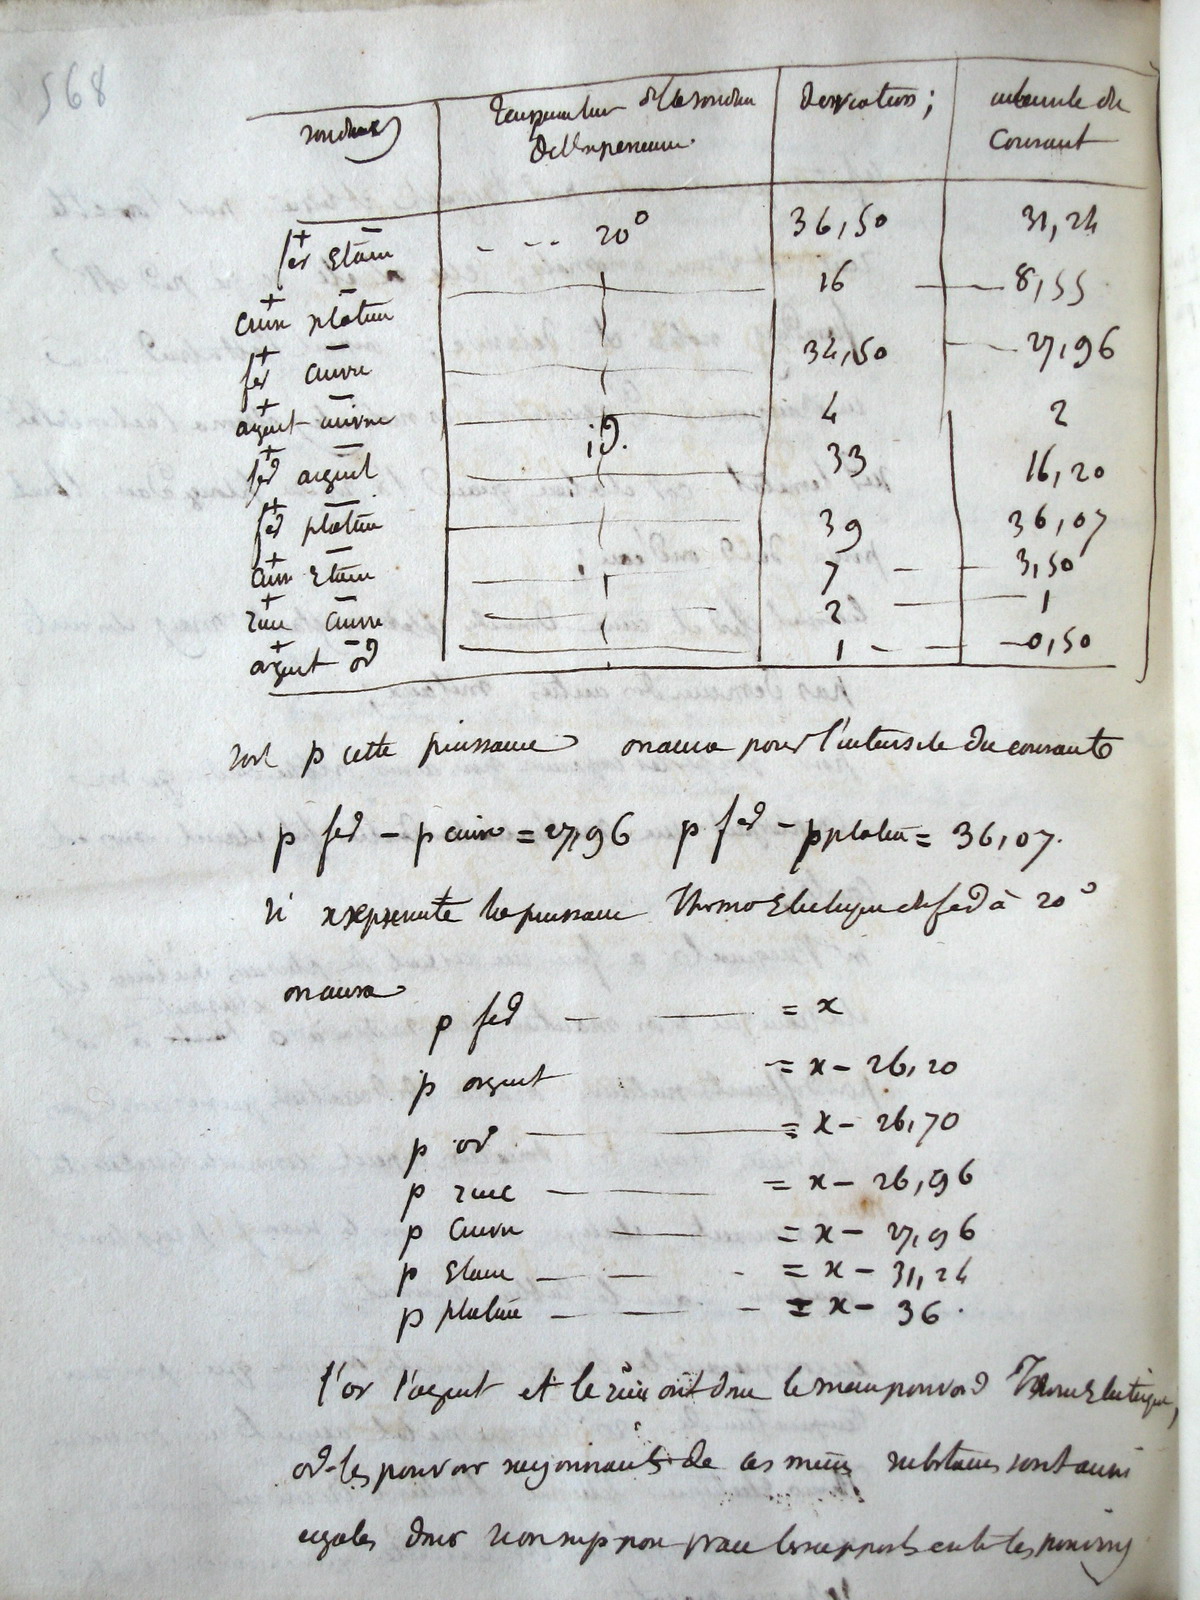 568
soudures | température de la soudure | déviations; | intensité du
de l'expérience. | Courant
+fer −Etain - - - 20° 36,50 31,24
+cuivre −platine 16 8,55
+fer −cuivre 34,50 27,96
+argent −cuivre 4 2
id.
+fer −argent 33 16,20
+fer −platine 39 36,07
+cuivre −Etain 7 - - 3,50
+zinc −cuivre 2 1
+argent −or 1 - - 0,50
soit p cette puissance on aura pour l'intensité du courant
p fer − p cuivre = 27,96 p fer − p platine = 36,07.
si x représente la puissance Thermo Electrique du fer à 20°
on aura
p fer — — = x
p argent = x − 26,20
p or — = x − 26,70
p zinc — — = x − 26,96
p Cuivre — = x − 27,96
p Etain — — - = x − 31,24
p platine — — - = x − 36.
l'or l'argent et le zinc ont donc le meme pouvoir Thermo Electrique,
or les pouvoir rayonnants de ces mêmes substances sont aussi
egales donc si on suppose que les rapports entre les pouvoirs